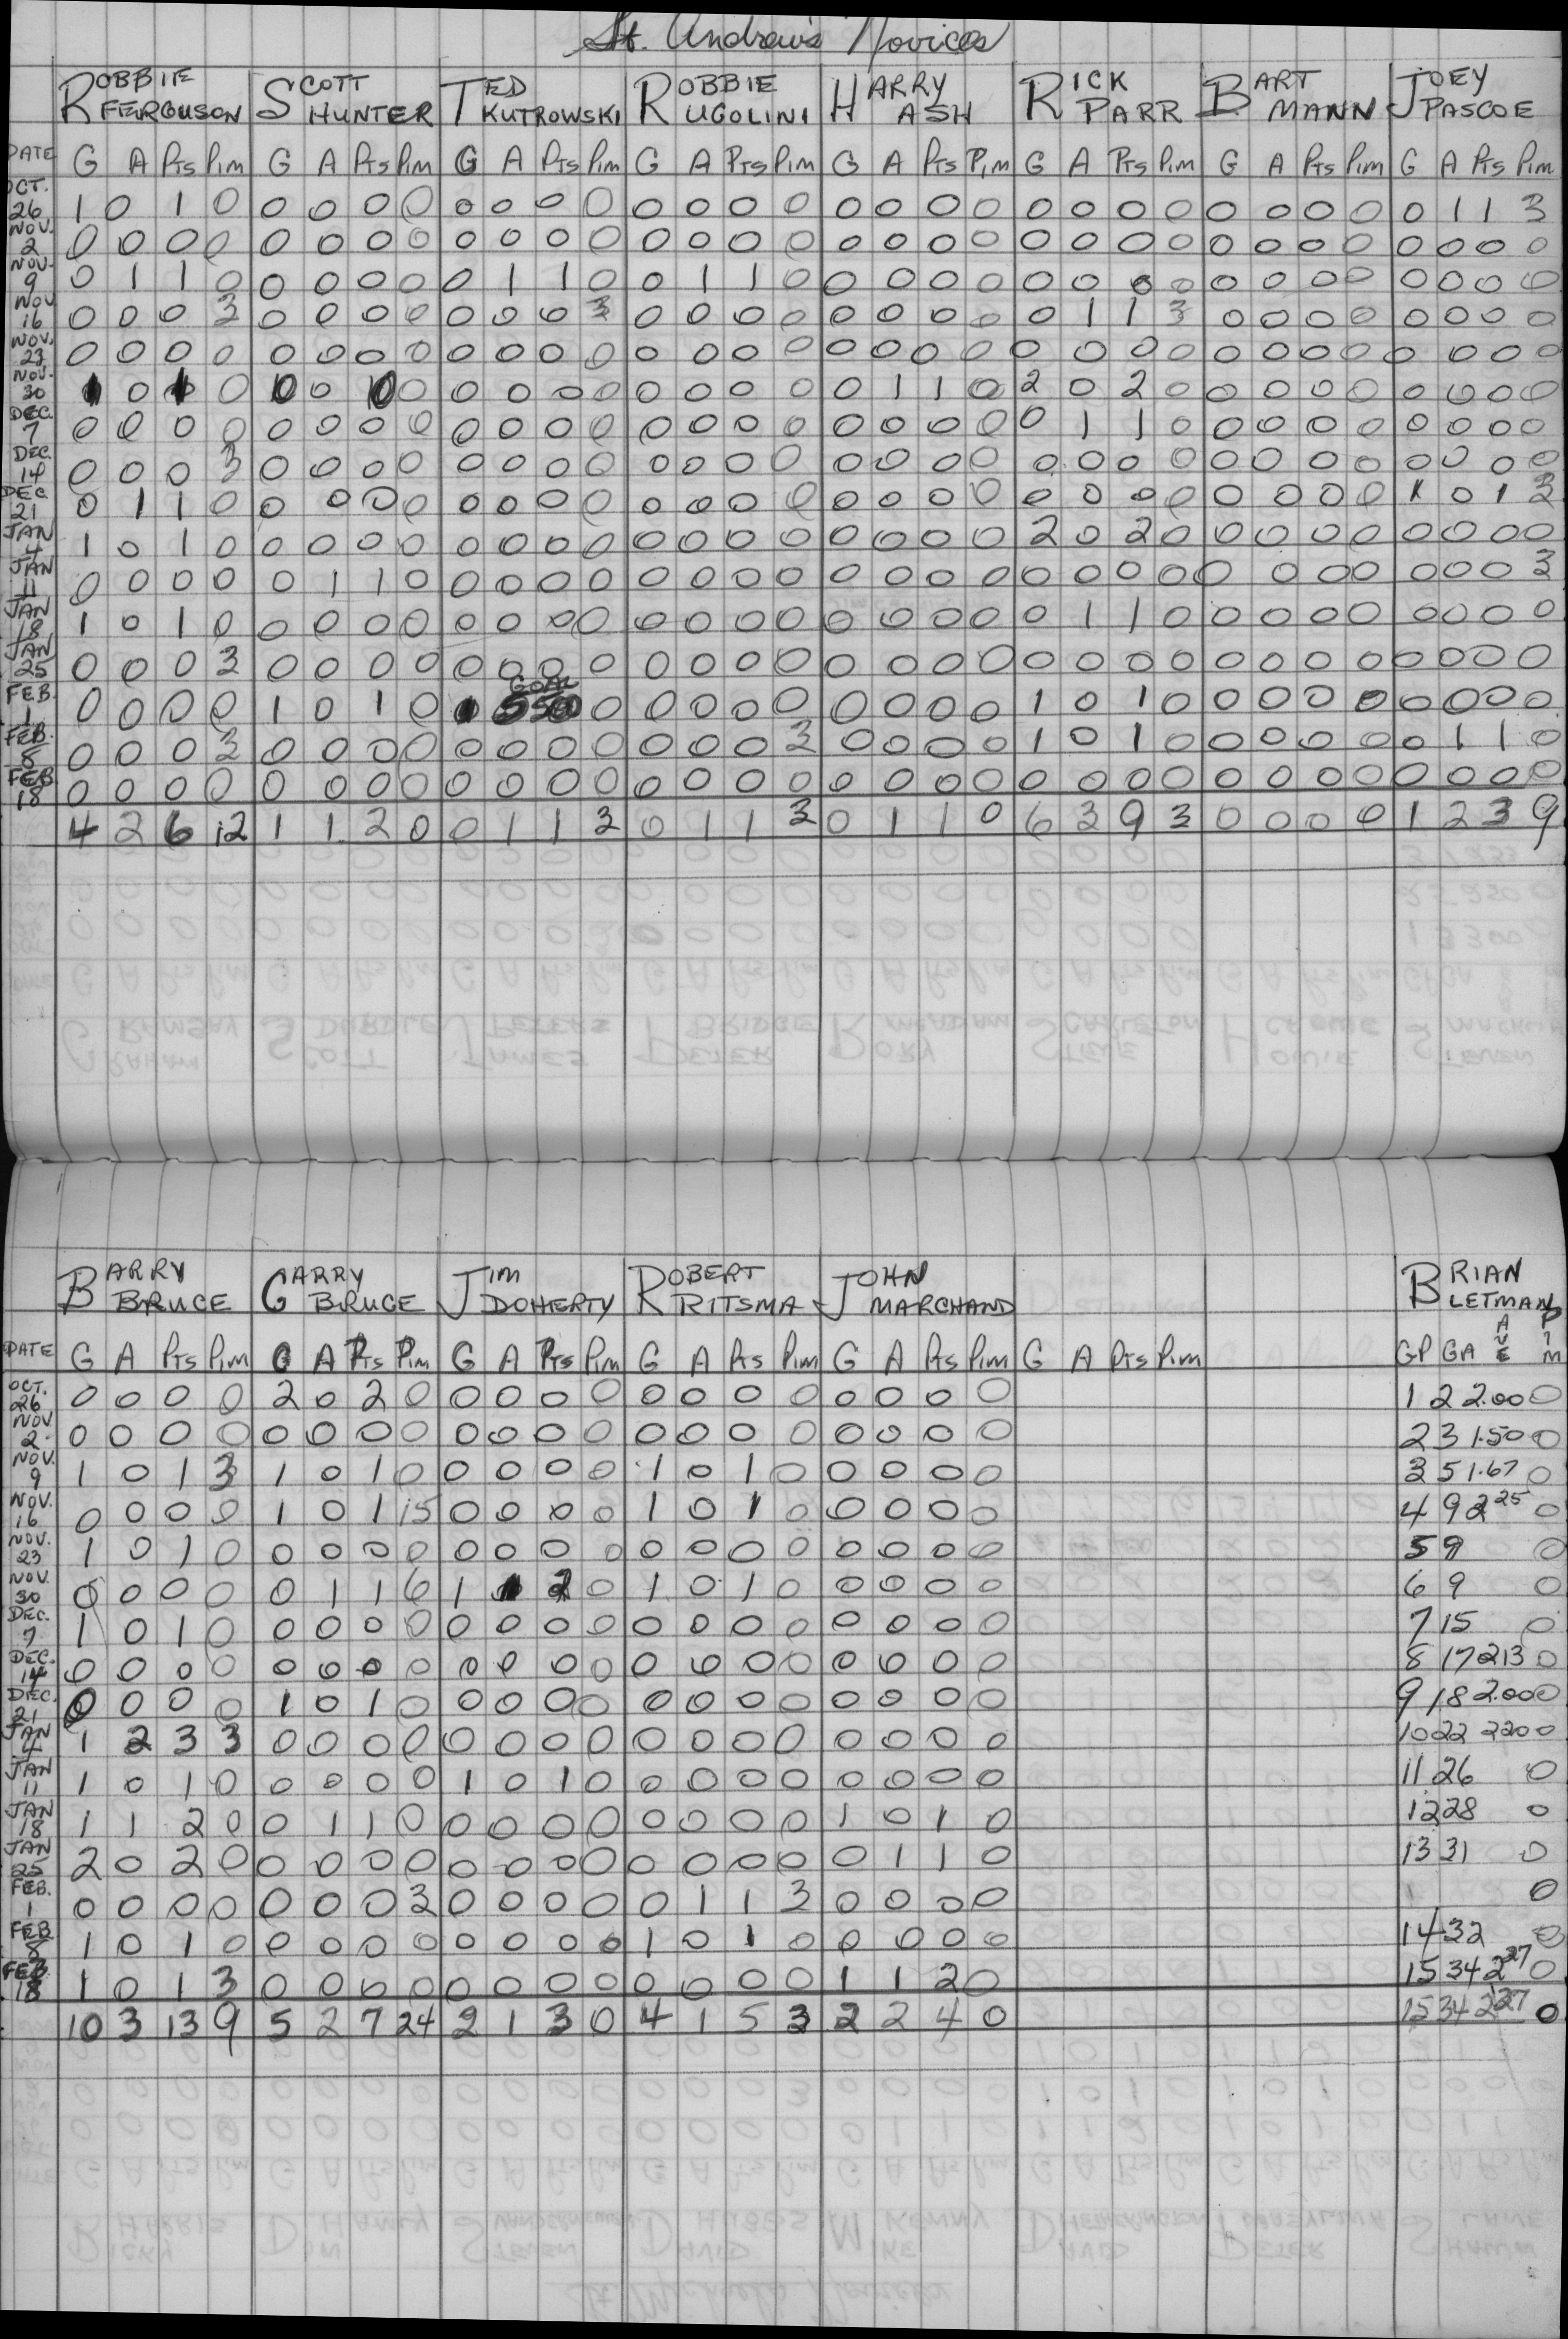 St. Andrew's Novices
ROBBIE FERGUSON SCOTT HUNTER TED KUTROWSKI ROBBIE UGOLINI HARRY ASH RICK PARR BART MANN JOEY PASCOE
DATE G A Pts Pim G A Pts Pim G A Pts Pim G A Pts Pim G A Pts Pim G A Pts Pim G A Pts Pim G A Pts Pim
OCT. 26 1 0 1 0 0 0 0 0 0 0 0 0 0 0 0 0 0 0 0 0 0 0 0 0 0 0 0 0 0 1 1 3
NOV. 2 0 0 0 0 0 0 0 0 0 0 0 0 0 0 0 0 0 0 0 0 0 0 0 0 0 0 0 0 0 0 0 0
NOV. 9 0 1 1 0 0 0 0 0 0 1 1 0 0 1 1 0 0 0 0 0 0 0 0 0 0 0 0 0 0 0 0 0
NOV 16 0 0 0 3 0 0 0 0 0 0 0 3 0 0 0 0 0 0 0 0 0 1 1 3 0 0 0 0 0 0 0 0
NOV. 23 0 0 0 0 0 0 0 0 0 0 0 0 0 0 0 0 0 0 0 0 0 0 0 0 0 0 0 0 0 0 0 0
NOV. 30 1 0 1 0 0 0 0 0 0 0 0 0 0 0 0 0 1 1 0 2 0 2 0 0 0 0 0 0 0 0 0
DEC. 7 0 0 0 0 0 0 0 0 0 0 0 0 0 0 0 0 0 0 0 0 0 1 1 0 0 0 0 0 0 0 0 0
DEC. 14 0 0 0 3 0 0 0 0 0 0 0 0 0 0 0 0 0 0 0 0 0 0 0 0 0 0 0 0 0 0 0 0
DEC. 21 0 1 1 0 0 0 0 0 0 0 0 0 0 0 0 0 0 0 0 0 0 0 0 0 0 0 0 0 1 0 1 3
JAN 4 1 0 1 0 0 0 0 0 0 0 0 0 0 0 0 0 0 0 0 0 2 0 2 0 0 0 0 0 0 0 0 0
JAN 11 0 0 0 0 0 1 1 0 0 0 0 0 0 0 0 0 0 0 0 0 0 0 0 0 0 0 0 0 0 0 0 3
JAN 18 1 0 1 0 0 0 0 0 0 0 0 0 0 0 0 0 0 0 0 0 0 1 1 0 0 0 0 0 0 0 0 0
JAN 25 0 0 0 3 0 0 0 0 0 0 0 0 0 0 0 0 0 0 0 0 0 0 0 0 0 0 0 0 0 0 0 0
GOAL
FEB. 1 0 0 0 0 1 0 1 0 1 5 5 0 0 0 0 0 0 0 0 0 0 1 0 1 0 0 0 0 0 0 0 0 0
FEB. 8 0 0 0 3 0 0 0 0 0 0 0 0 0 0 0 3 0 0 0 0 1 0 1 0 0 0 0 0 0 1 1 0
FEB 18 0 0 0 0 0 0 0 0 0 0 0 0 0 0 0 0 0 0 0 0 0 0 0 0 0 0 0 0 0 0 0 0
4 2 6 12 1 1 2 0 0 1 1 3 0 1 1 3 0 1 1 0 6 3 9 3 0 0 0 0 1 2 3 9
BARRY BRUCE GARRY BRUCE JIM DOHERTY ROBERT RITSMA JOHN MARCHAND BRIAN LETMAN
DATE G A Pts Pim G A Pts Pim G A Pts Pim G A Pts Pim G A Pts Pim G A Pts Pim GP GA AVE PIM
OCT. 26 0 0 0 0 2 0 2 0 0 0 0 0 0 0 0 0 0 0 0 0 1 2 2.00 0
NOV 2 0 0 0 0 0 0 0 0 0 0 0 0 0 0 0 0 0 0 0 0 2 3 1.50 0
NOV. 9 1 0 1 3 1 0 1 0 0 0 0 0 1 0 1 0 0 0 0 0 3 5 1.67 0
NOV. 16 0 0 0 0 1 0 1 15 0 0 0 0 1 0 1 0 0 0 0 0 4 9 2 25 0
NOV. 23 1 0 1 0 0 0 0 0 0 0 0 0 0 0 0 0 0 0 0 0 5 9 0
NOV. 30 0 0 0 0 0 1 1 6 1 1 2 0 1 0 1 0 0 0 0 0 6 9 0
DEC. 7 1 0 1 0 0 0 0 0 0 0 0 0 0 0 0 0 0 0 0 0 7 15 0
DEC. 14 0 0 0 0 0 0 0 0 0 0 0 0 0 0 0 0 0 0 0 0 8 17 213 0
DEC. 21 0 0 0 0 1 0 1 0 0 0 0 0 0 0 0 0 0 0 0 0 9 18 2.00 0
JAN 4 1 2 3 3 0 0 0 0 0 0 0 0 0 0 0 0 0 0 0 0 10 22 220 0
JAN 11 1 0 1 0 0 0 0 0 1 0 1 0 0 0 0 0 0 0 0 0 11 26 0
JAN 18 1 1 2 0 0 1 1 0 0 0 0 0 0 0 0 0 1 0 1 0 12 28 0
JAN 25 2 0 2 0 0 0 0 0 0 0 0 0 0 0 0 0 0 1 1 0 13 31 0
FEB. 1 0 0 0 0 0 0 0 3 0 0 0 0 0 1 1 3 0 0 0 0 0
FEB. 8 1 0 1 0 0 0 0 0 0 0 0 0 1 0 1 0 0 0 0 0 14 32 0
FEB 18 1 0 1 3 0 0 0 0 0 0 0 0 0 0 0 0 1 1 2 0 15 34 2 27 0
10 3 13 9 5 2 7 24 2 1 3 0 4 1 5 3 2 2 4 0 15 34 2 27 0